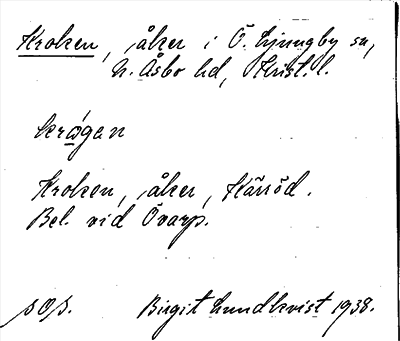 Kroken, åker i Ö. Ljungby sn,
N. Åsbo hd, Krist. l.
krǫ́gan
Kroken, åker, Kärröd.
Bel. vid Övarp.
sOs. Birgit Lundkvist 1938.